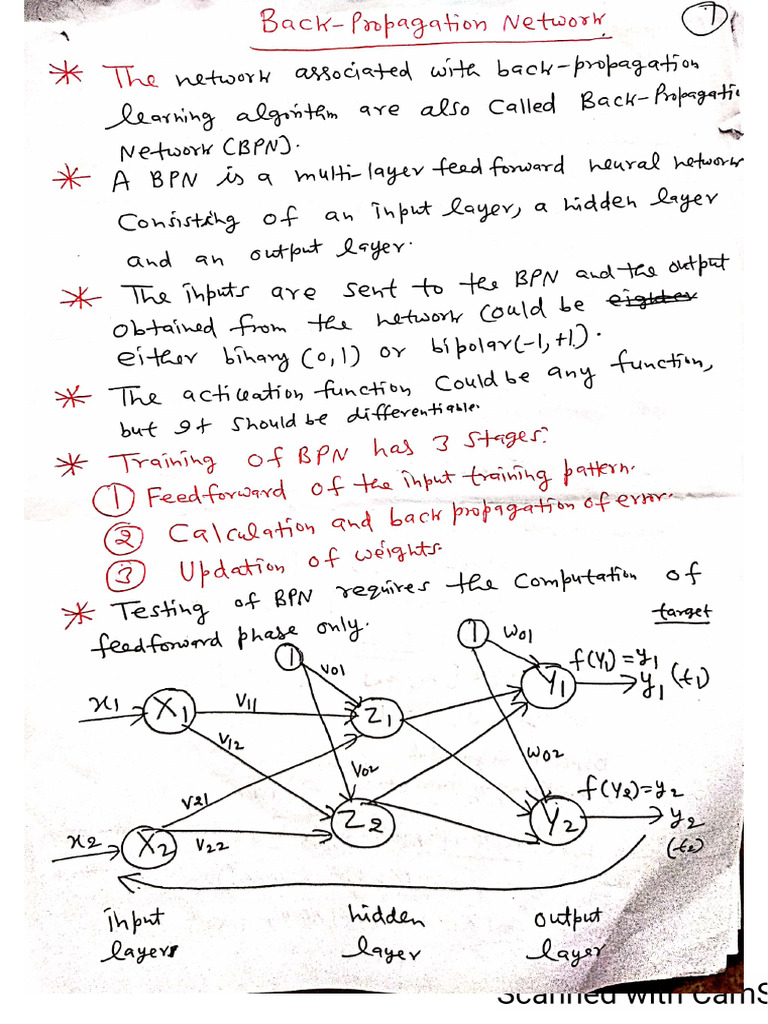 Back-Propagation Network
1
* The network associated with back-propagation
learning algorithm are also called Back-Propagati
Network (BPN).
* A BPN is a multi-layer feed forward neural network
Consisting of an input layer, a hidden layer
and an output layer.
* The inputs are sent to the BPN and the output
obtained from the network could be eighter
either binary (0,1) or bipolar(-1,+1).
* The activation function could be any function,
but It should be differentiable.
* Training of BPN has 3 stages:
① Feedforward of the input training pattern.
② Calculation and back propagation of error.
③ Updation of weights.
* Testing of BPN requires the computation of
feedforward phase only.
target
1 v01
1 w01
f(Y1)=y1
x1 X1 v11 Z1 Y1 y1 (t1)
v12
v02
w02
v21
f(Y2)=y2
x2 X2 v22 Z2 Y2 y2
(t2)
input hidden output
layers layer layer
Scanned with CamS